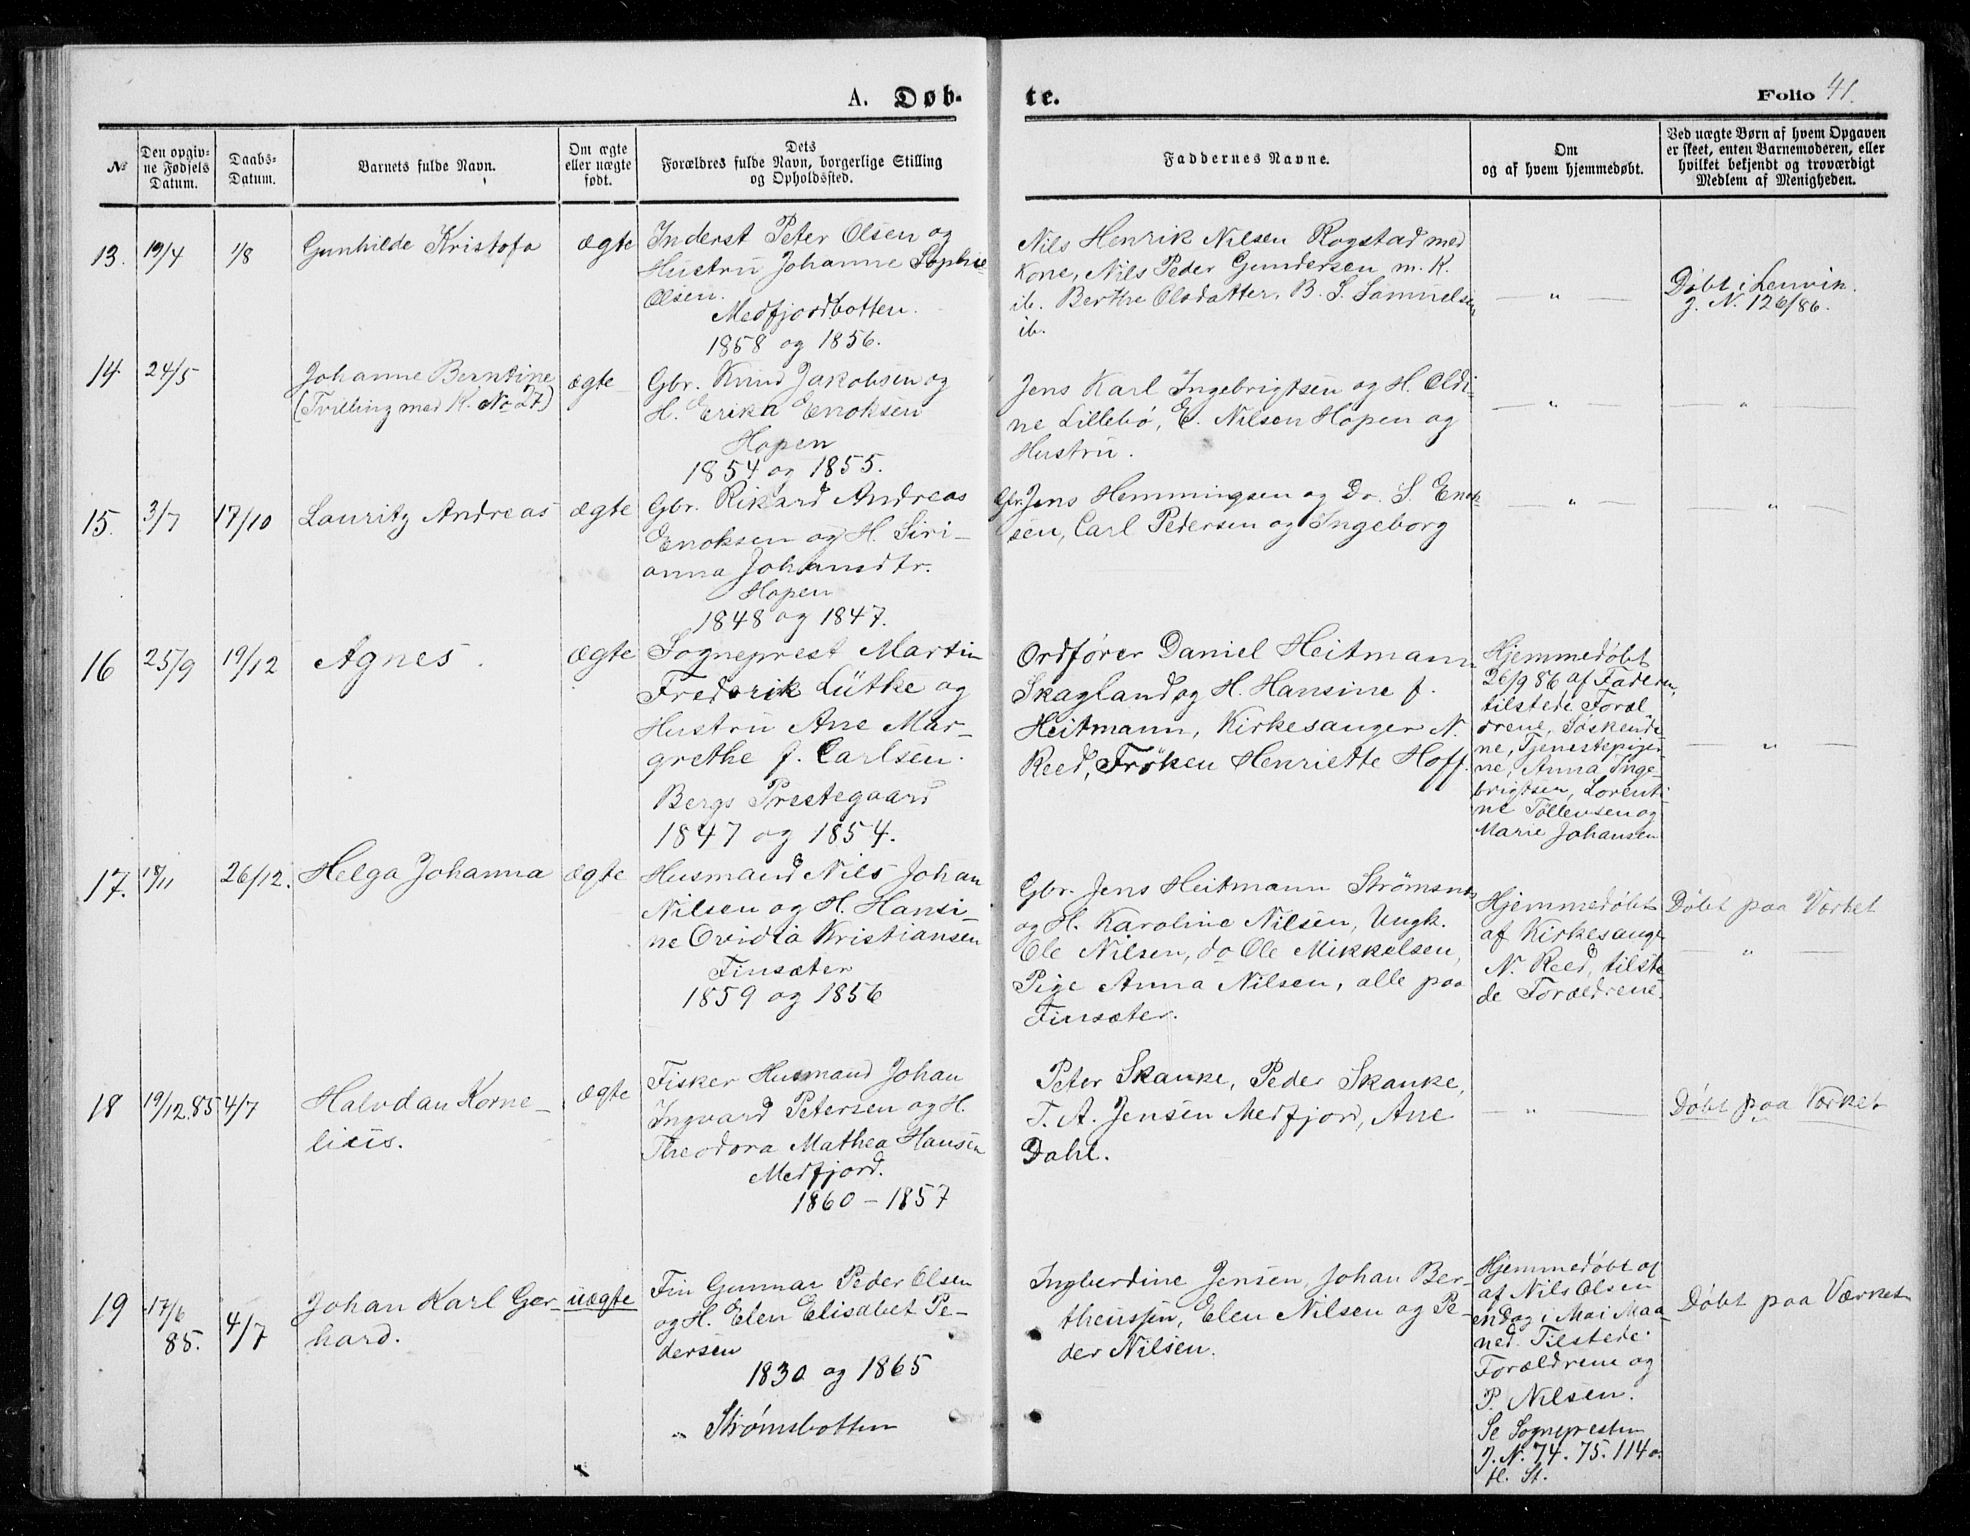 A. Døb-
te.
Folio 41.
No
Den opgiv-
ne Fødsels
Datum.
Daabs-
Datum.
Barnets fulde Navn.
Om ægte
eller uægte
født.
Dets
Forældres fulde Navn, borgerlige Stilling
og Opholdssted.
Faddernes Navne.
Om
og af hvem hjemmedøbt.
Ved uægte Børn af hvem Opgaven
er skeet, enten Barnemoderen, eller
hvilket bekjendt og troværdigt
Medlem af Menigheden.
13. 19/4 1/8 Gunhilde Kristofa ægte
Inderst Peter Olsen og
Hustru Johanne Sophie
Olsen.
Medfjordbotten.
1858 og 1856.
Nils Henrik Nilsen Rogstad med
Kone, Nils Peder Gundersen m. K.
ib. Berthe Olsdatter, B. S. Samuelsen
ib.
— „ —
Døbt i Lenvik.
J. N. 126/86.
14. 24/5 Johanne Berntine ægte
(Tvilling med K. No 27)
Gbr. Knud Jakobsen og
H. Erika Enoksen
Hopen
1854 og 1855.
Jens Karl Ingebrigtsen og H. Oldi-
ne Lillebø, E. Nilsen Hopen og
Hustru.
— „ —
— „ —
15. 3/7 17/10 Lauritz Andreas ægte
Gbr. Rikard Andreas
Enoksen og H. Siri-
anna Johansdtr.
Hopen
1848 og 1847.
Gbr. Jens Hemmingsen og Do. S. Enok-
sen, Carl Pedersen og Ingeborg
— „ —
— „ —
16 25/9 19/12 Agnes. ægte
Sogneprest Martin
Frederik Lütke og
Hustru Ane Mar-
grethe f. Carlsen.
Bergs Prestegaard
1847 og 1854.
Ordfører Daniel Heitmann
Skagland og H. Hansine f.
Heitmann, Kirkesanger N.
Reed, Frøken Henriette Hoff.
Hjemmedøbt
26/9 86 af Faderen,
tilstede Foræl
drene, Søskende-
ne, Tjenestepiger-
ne, Anna Inge-
brigtsen, Lorenti-
ne Tollevsen og
Marie Johansen
— „ —
17. 18/11 26/12. Helga Johanna ægte
Husmand Nils Johan
Nilsen og H. Hansi-
ne Ovidia Kristiansen
Finsæter
1859 og 1856
Gbr. Jens Heitmann Strømsnes
og H. Karoline Nilsen, Ungk.
Ole Nilsen, do Ole Mikkelsen,
Pige Anna Nilsen, alle paa
Finsæter.
Hjemmedøbt
af Kirkesanger
N. Reed, tilste
de Forældrene.
Døbt paa Værket
— „ —
18 19/12.85 4/7 Halvdan Korne- ægte
lius.
Fisker Husmand Johan
Ingvard Petersen og H.
Theodora Mathea Hansen
Medfjord.
1860 – 1857
Peter Skanke, Peder Skanke,
T. A. Jensen Medfjord, Ane
Dahl.
— „ —
Døbt paa Værket
19 17/6 85. 4/7 Johan Karl Ger- uægte
hard.
Fin Gunnar Peder Olsen
og H. Elen Elisabet Pe-
dersen
1830 og 1865
„ Strømsbotten
Ingberdine Jensen, Johan Ber-
theussen, Elen Nilsen og Pe-
der Nilsen.
Hjemmedøbt af
af Nils Olsen
endag i Mai Maa-
ned. Tilstede
Forældrene og
P. Nilsen.
Se Sognepresten
J. N. 74. 75. 114 o.
fl. St.
Døbt paa Værket